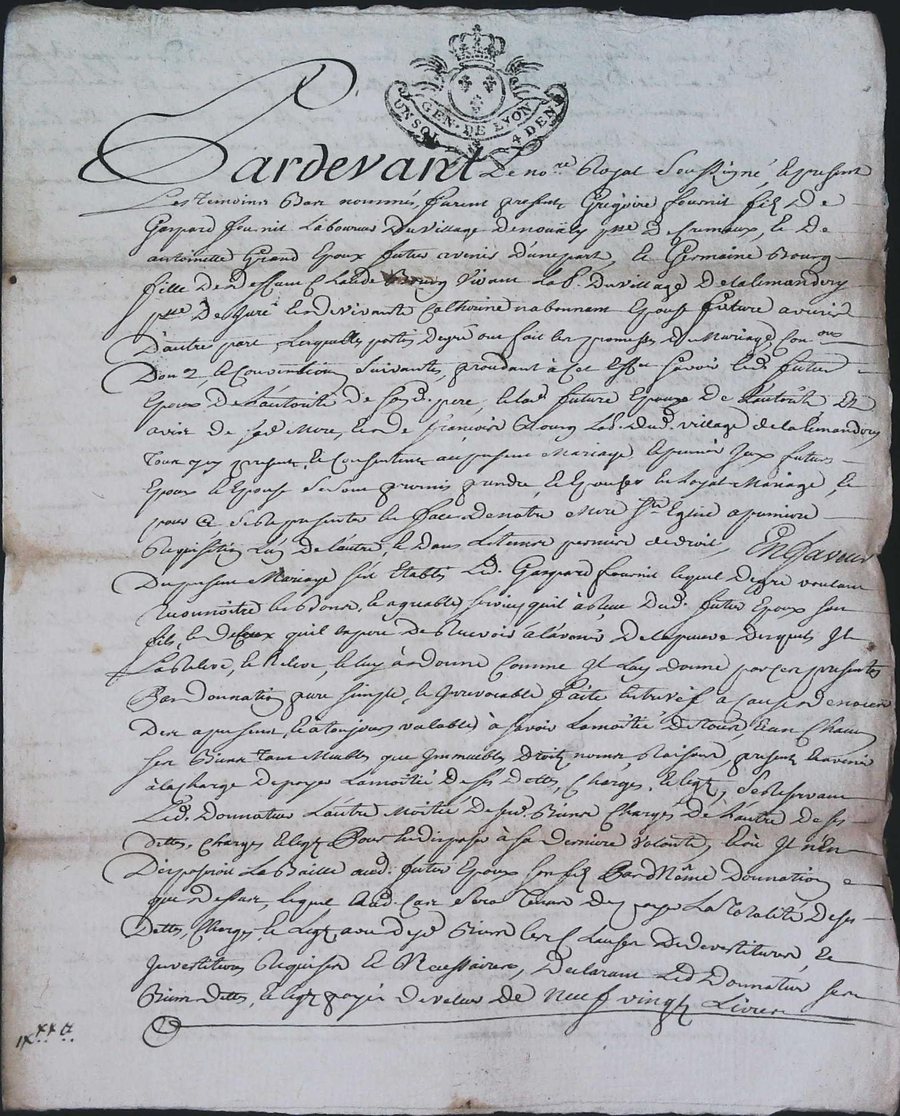 UN SOL GEN. DE LYON 4 DEN.
Pardevant Le no.re Royal Soussigné, et present
Les temoins Bas nommés, furent presents Grégoire fournit fils De
Gaspard fournit Laboureur Du village p.sse De Cremeaux, et De
antoinette Grand Epoux futur avenir d'une part, et Germaine Bourg
fille de Claude Bourg vivant Lab. Du village De
p.sse De Juré et vivante Catherine Epouse future avenir
D'autre part, Lesquelles parties Degré ont fait les promesses De Mariage, Don.ons
Et Convintions Suivantes, procedant à Cet Effet Savoir led. futur
Epoux De L'autorité De Sond. pere, et lad. future Epouse De L'autorité Et
avis De sad. Mere, et De françois Bourg Lab. Dud. village
tous presents, et Consentents au present Mariage, futurs
Epoux et Epouse Se Sont promis prendre, et Epouser En Loyal Mariage, et
pour Ce Se presenter En face De notre Mere S.te Eglise a premiere
Requisition L'un De L'autre, et Dans Le temps permis De droit, En faveur
Du present Mariage S'est Etabli Led. Gaspard fournit lequel Degré voulant
reconnoitre les Bons, et agreables services qu'il à Dud. futur Epoux Son
fils, et De Ceux qu'il Espere De Recevoir à L'avenir De La preuve Desquels Il
La Relevé, et Releve, et luy à Donné Comme Il Luy Donne par Ces presentes
Par Donnation pure Simple, et Irrevocable faite Entre vif a
Des a present, et a toujours valable à Savoir La moitié De tous Et un Chacun
Ses Biens tant Meubles que Immeubles Droits noms Raisons presents Et avenir
à la charge De payer La moitié De Ses Dettes, Charges, Et legs, Se Reservant
Led. Donnateur L'autre Moitié De Sesd. Biens Charges De L'autre De Ses
Dettes, Charges Et legs Pour En Disposer à Sa Derniere Volonté, Et où Il n'En
Disposeroit La Baille aud. futur Epoux Son fils Par Même Donnation
que Dessus, lequel Aud. Cas Sera Tenu De payer La Totalité De Ses
Dettes, Charges, et Legs Clauses De Devestiture, Et
Investiture Requises Et Necessaires, Declarant Led. Donnateur Ses
Biens Dettes, et legs payés De valeur De Neuf vingts Livres
IX.XX